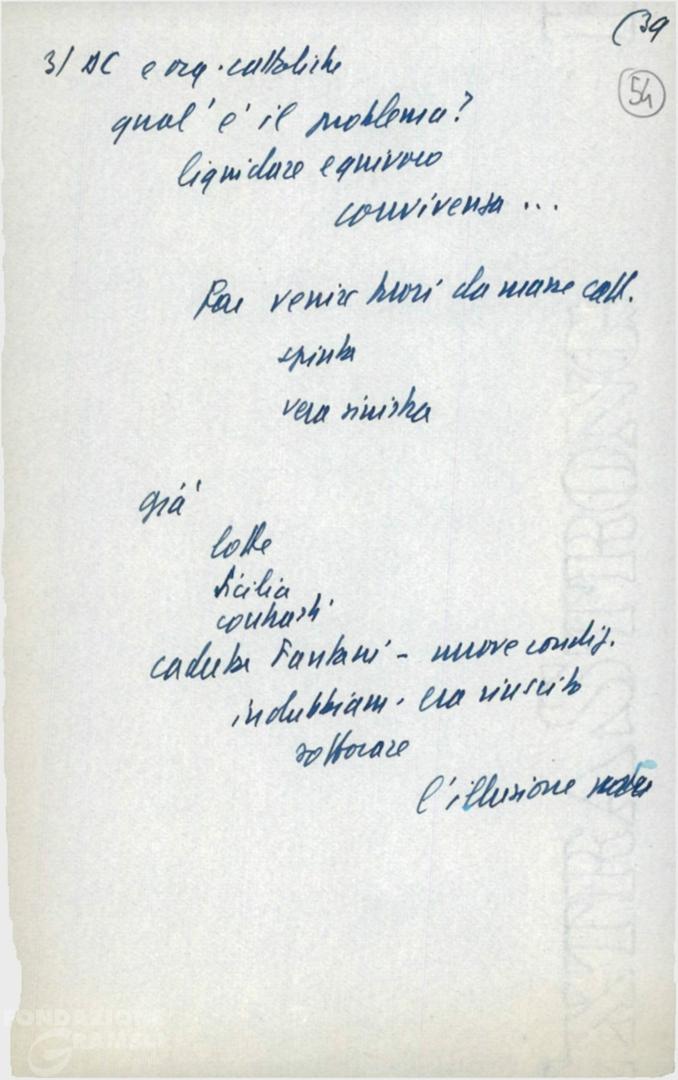 (39
54
3/ DC e org. cattoliche
qual'è il problema?
liquidare equivoco
convivenza ...
Far venire fuori da masse catt.
spinta
vera sinistra
già
lotte
Sicilia
contrasti
caduta Fanfani - nuove condiz.
indubbiam. era riuscito
soffocare
l'illusione
FONDAZIONE
GRAMSCI
EXTRA STRONG